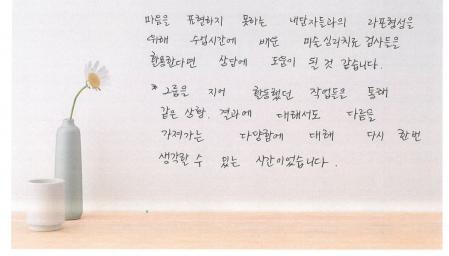 마음을 표현하지 못하는 내담자들과의 라포형성을
위해 수업시간에 배운 미술심리치료 검사등을
활용한다면 상담에 도움이 될 것 같습니다.
* 그룹을 지어 활동했던 작업들을 통해
같은 상황, 결과에 대해서도 다름을
가져가는 다양함에 대해 다시 한번
생각할 수 있는 시간이었습니다.